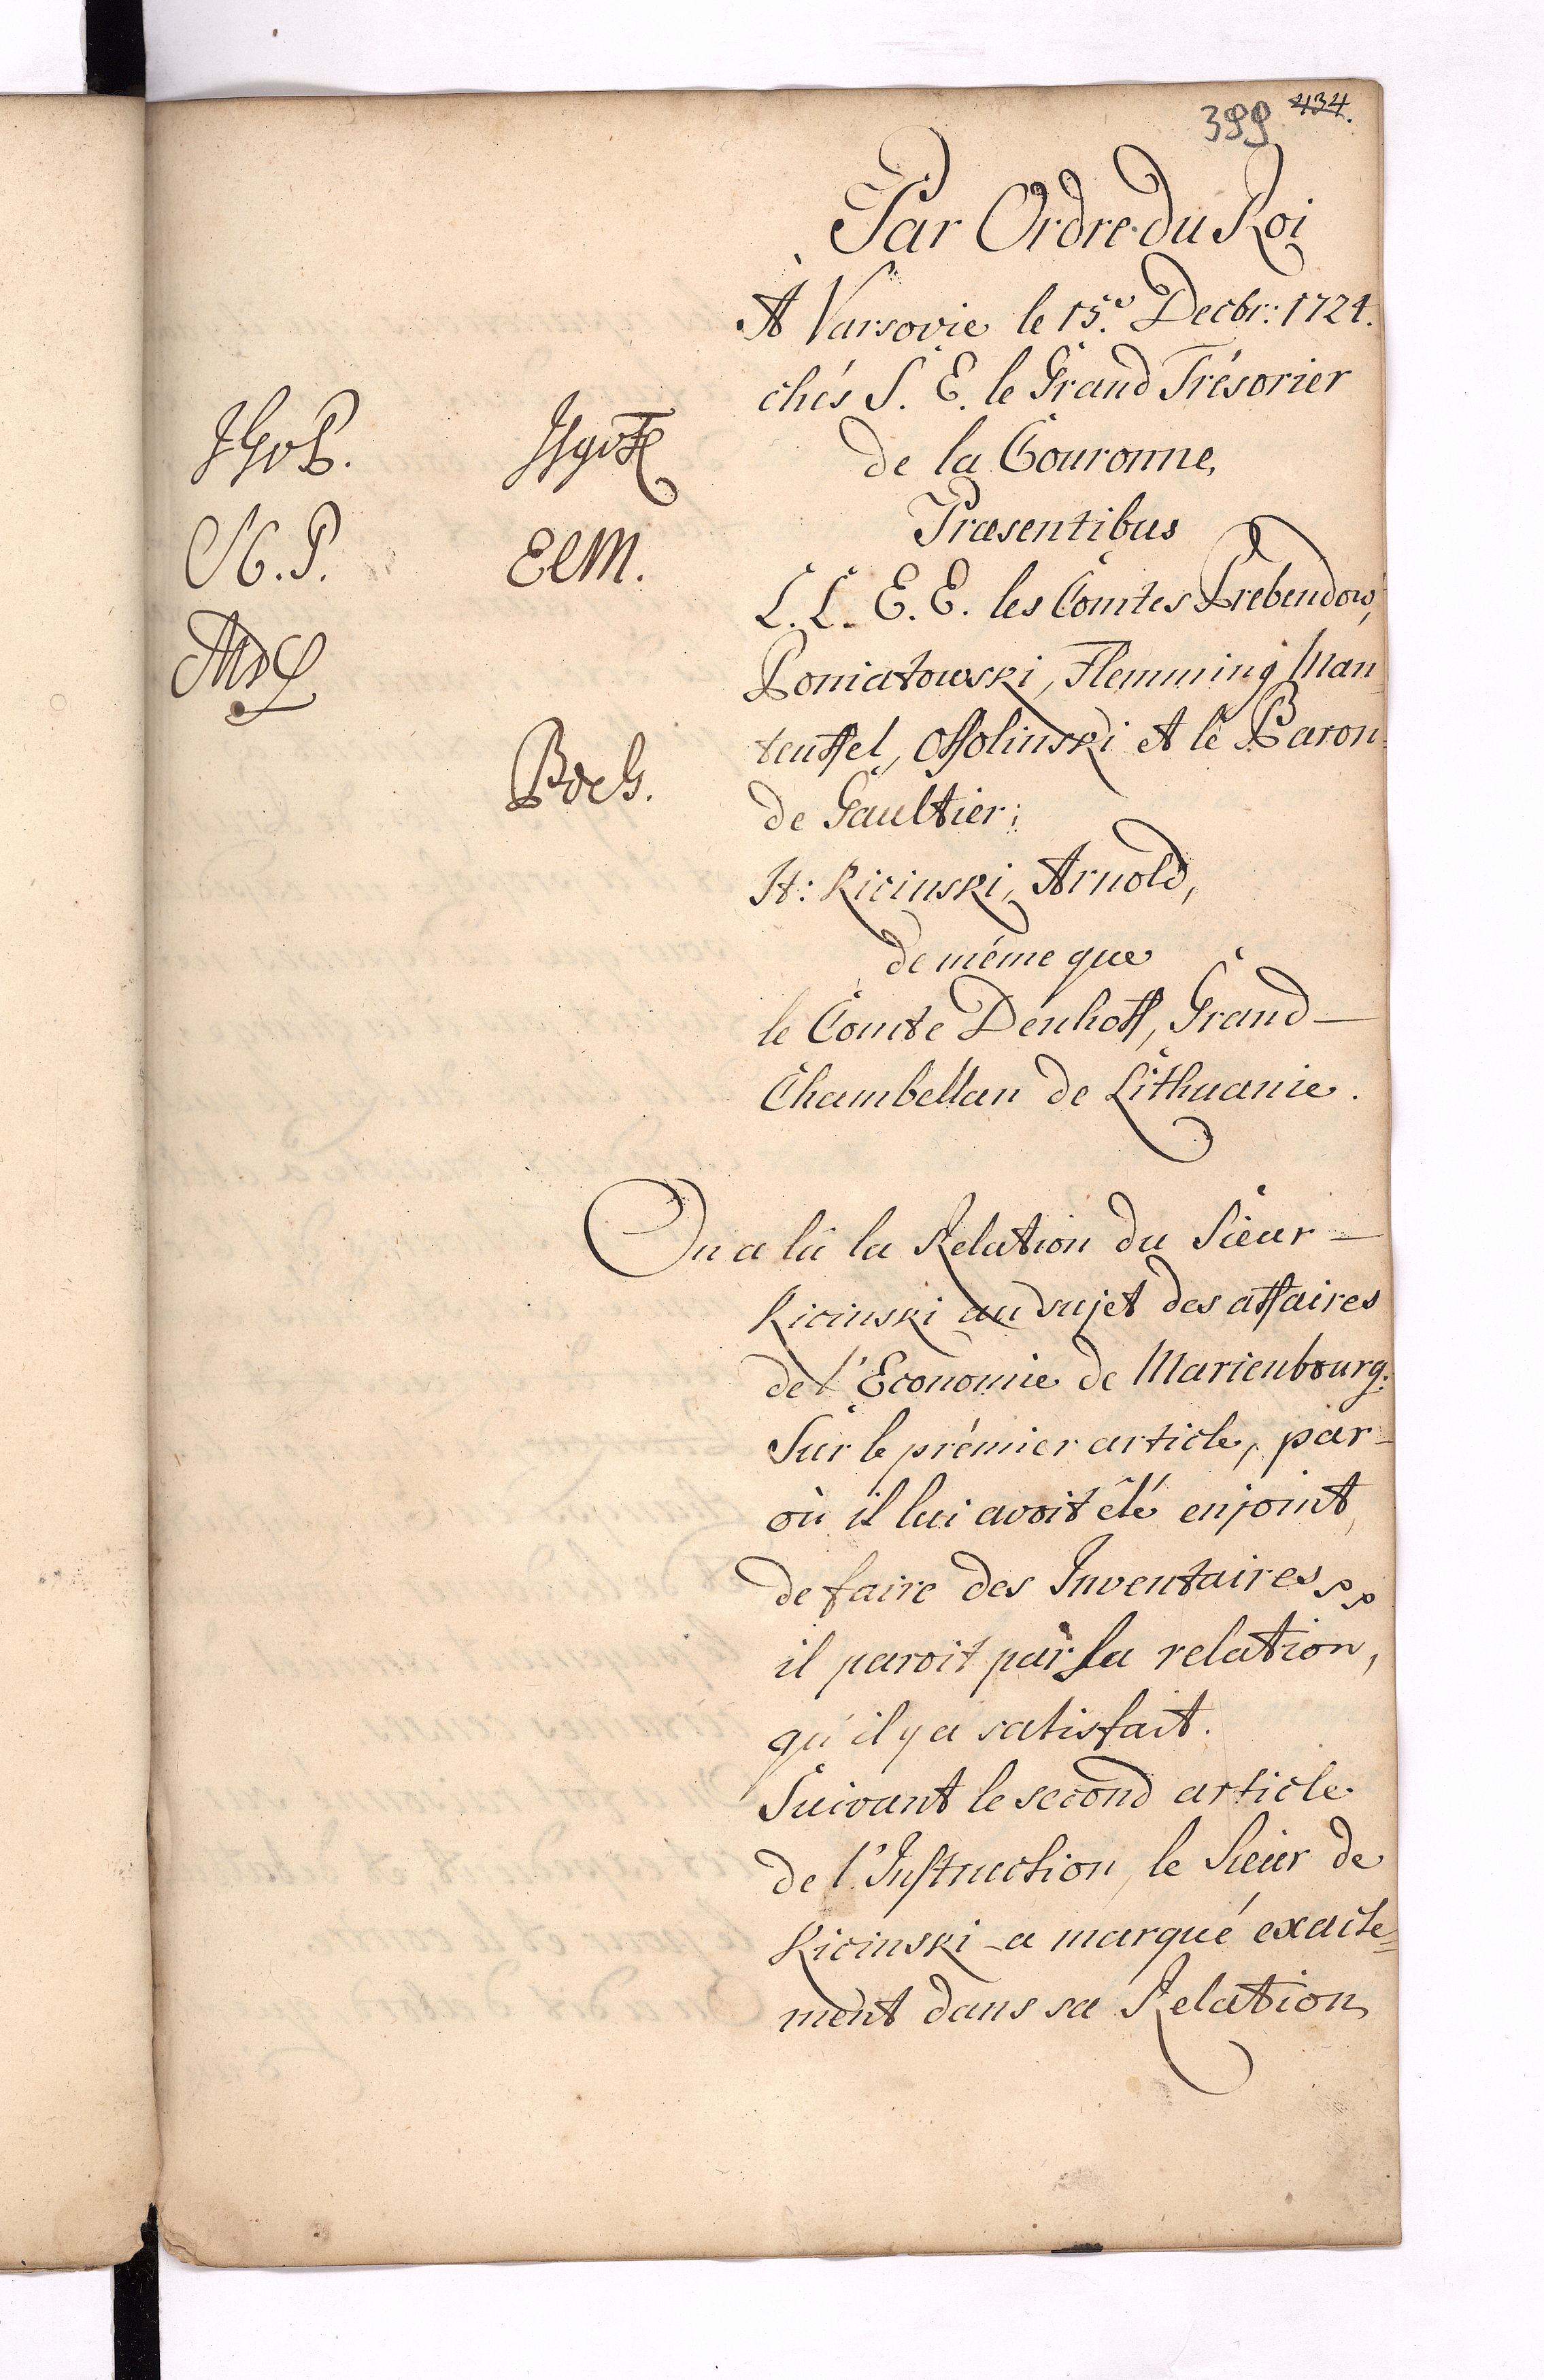 399 434.
Par Ordre du Roi
À Varsovie le 15.e Decbr: 1724.
chés S. E. le Grand Trésorier
de la Couronne,
Præsentibus
L. L. E. E. les Comtes Prebendow,
Poniatowski, Flemming Man
teuffel, Ossolinski et le Baron
de Gaultier;
It: Kicinski, Arnold,
de méme que
le Comte Denhoff, Grand
Chambellan de Lithuanie.
JGvP.
StP.
EClM.
BdeG.
On a lû la Relation du Sieur
Kicinski au sujet des affaires
de l'Economie de Marienbourg.
Sur le prémier article, par
où il lui avoit été enjoint,
de faire des Inventaires
il paroit par sa relation,
qu'il y a satisfait.
Suivant le second article
de l'Instruction, le Sieur de
Kicinski a marqué exacte=
ment dans sa Relation